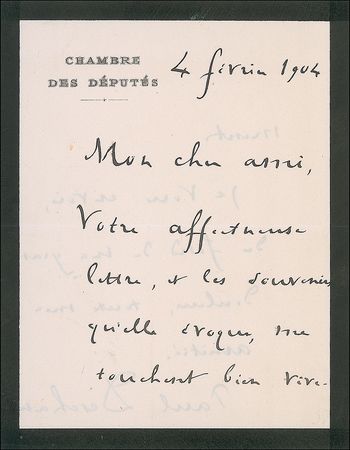 CHAMBRE
DES DÉPUTÉS
4 février 1904
Mon cher ami,
Votre affectueuse
lettre, et les souvenirs
qu'elle évoque, me
touchent bien vive-